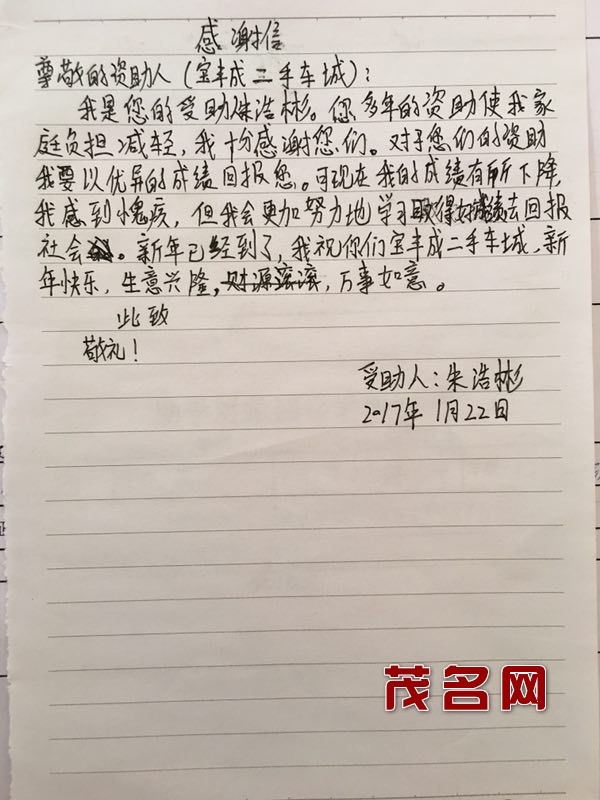 感谢信
尊敬的资助人（宝丰成二手车城）：
我是您的受助朱浩彬。您多年的资助使我家
庭负担减轻，我十分感谢您们。对于您们的资助
我要以优异的成绩回报您。可现在我的成绩有所下降，
我感到愧疚，但我会更加努力地学习取得好成绩去回报
社会。新年已经到了，我祝你们宝丰成二手车城，新
年快乐，生意兴隆，财源滚滚，万事如意。
此致
敬礼！
受助人：朱浩彬
2017年1月22日
茂名网